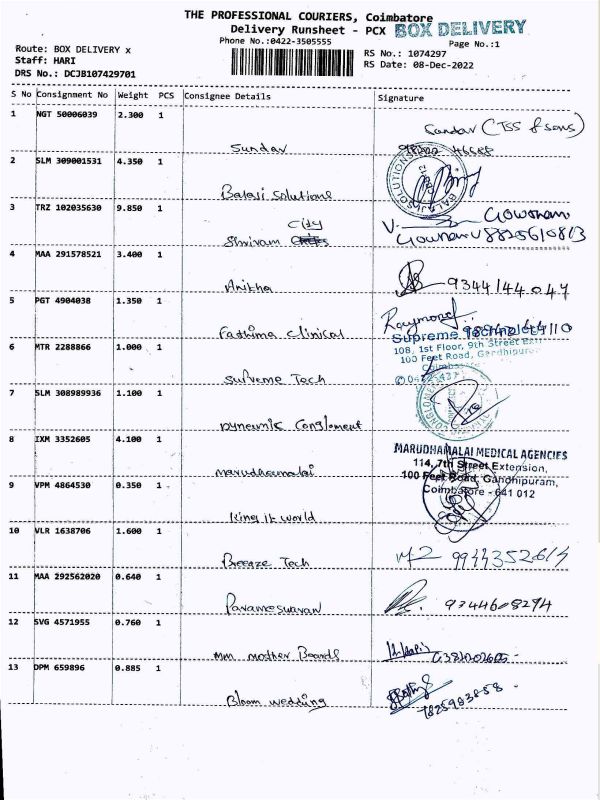 THE PROFESSIONAL COURIERS, Coimbatore
Delivery Runsheet - PCX BOX DELIVERY
Phone No.:0422-3505555 Page No.:1
Route: BOX DELIVERY x
Staff: HARI
DRS No.: DCJB107429701
RS No.: 1074297
RS Date: 08-Dec-2022
S No Consignment No Weight PCS Consignee Details Signature
1 NGT 50006039 2.300 1
Sundar Sundar (TSS & sons)
2 SLM 309001531 4.350 1
Balaji Solutions
3 TRZ 102035630 9.850 1
City
Shriram
Gowsham
8825610813
4 MAA 291578521 3.400 1
Anitha 9344144047
5 PGT 4904038 1.350 1
Fathima Clinical Raymond
6 MTR 2288866 1.000 1
Supreme Technologies
108, 1st Floor, 9th Street
100 Feet Road, Gandhipuram
Supreme Tech
7 SLM 308989936 1.100 1
8 IXM 3352605 4.100 1
MARUDHAMALAI MEDICAL AGENCIES
114, 7th Street Extension,
100 Feet Road, Gandhipuram,
Coimbatore - 641 012
Marudhamalai
9 VPM 4864530 0.350 1
King it world
10 VLR 1638706 1.600 1
Breeze Tech
11 MAA 292562020 0.640 1
Parameswaran 9344608294
12 SVG 4571955 0.760 1
mm mother Boards
13 DPM 659896 0.885 1
Bloom wedding